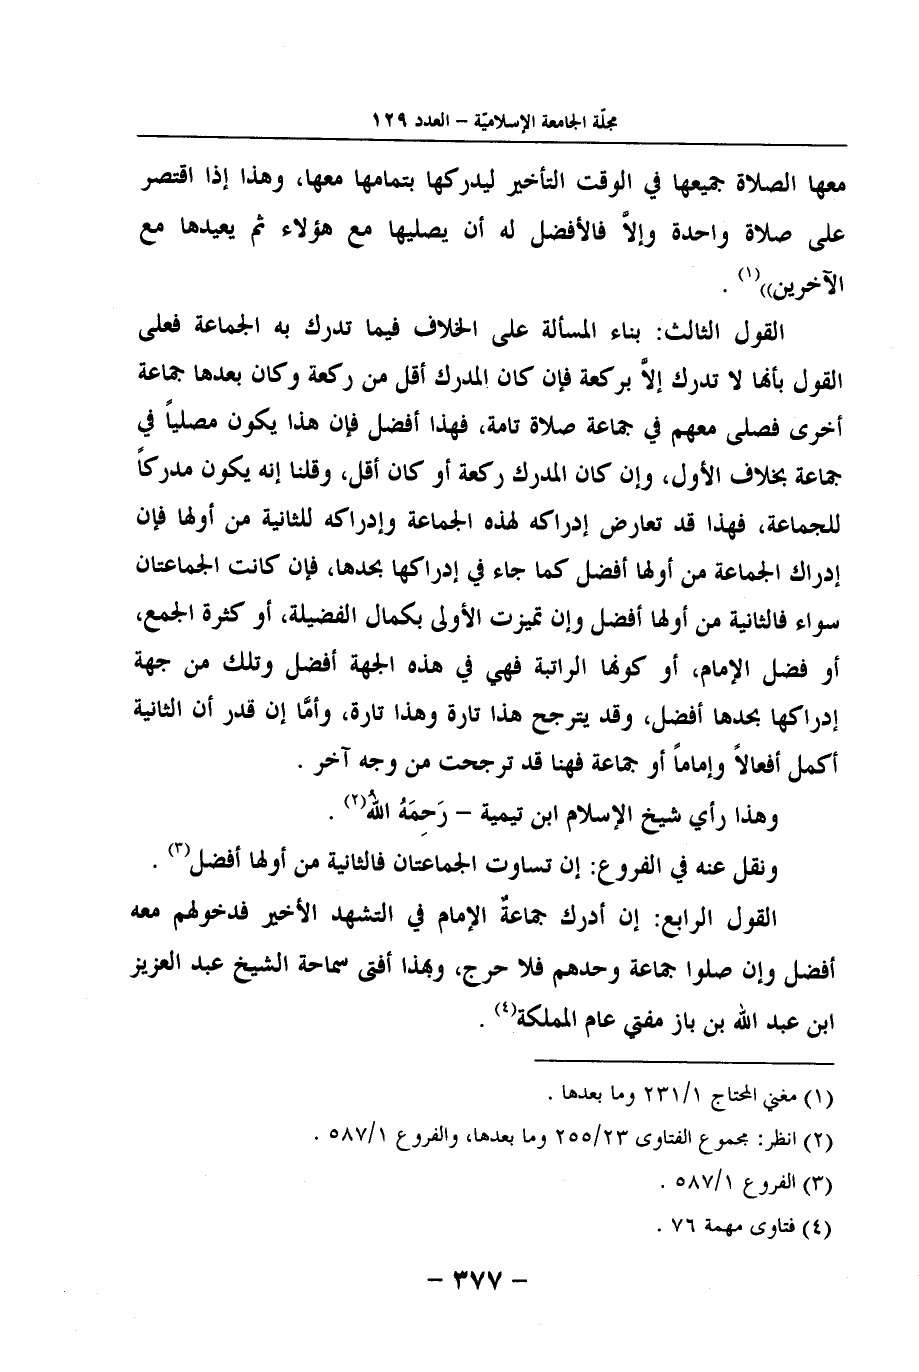 مجلّة الجامعة الإسلاميّة – العدد ١٢٩
معها الصلاة جميعها في الوقت التأخير ليدركها بتمامها معها، وهذا إذا اقتصر
على صلاة واحدة وإلاَّ فالأفضل له أن يصليها مع هؤلاء ثم يعيدها مع
الآخرين))(١) .
القول الثالث: بناء المسألة على الخلاف فيما تدرك به الجماعة فعلى
القول بأنها لا تدرك إلاَّ بركعة فإن كان المدرك أقل من ركعة وكان بعدها جماعة
أخرى فصلى معهم في جماعة صلاة تامة، فهذا أفضل فإن هذا يكون مصلياً في
جماعة بخلاف الأول، وإن كان المدرك ركعة أو كان أقل، وقلنا إنه يكون مدركاً
للجماعة، فهذا قد تعارض إدراكه لهذه الجماعة وإدراكه للثانية من أولها فإن
إدراك الجماعة من أولها أفضل كما جاء في إدراكها بحدها، فإن كانت الجماعتان
سواء فالثانية من أولها أفضل وإن تميزت الأولى بكمال الفضيلة، أو كثرة الجمع،
أو فضل الإمام، أو كونها الراتبة فهي في هذه الجهة أفضل وتلك من جهة
إدراكها بحدها أفضل، وقد يترجح هذا تارة وهذا تارة، وأمَّا إن قدر أن الثانية
أكمل أفعالاً وإماماً أو جماعة فهنا قد ترجحت من وجه آخر .
وهذا رأي شيخ الإسلام ابن تيمية – رَحِمَهُ اللهُ(٢) .
ونقل عنه في الفروع: إن تساوت الجماعتان فالثانية من أولها أفضل(٣) .
القول الرابع: إن أدرك جماعةٌ الإمام في التشهد الأخير فدخولهم معه
أفضل وإن صلوا جماعة وحدهم فلا حرج، وبهذا أفتى سماحة الشيخ عبد العزيز
ابن عبد الله بن باز مفتي عام المملكة(٤) .
(١) مغني المحتاج ٢٣١/١ وما بعدها .
(٢) انظر: مجموع الفتاوى ٢٥٥/٢٣ وما بعدها، والفروع ٥٨٧/١ .
(٣) الفروع ٥٨٧/١ .
(٤) فتاوى مهمة ٧٦ .
– ٣٧٧ –